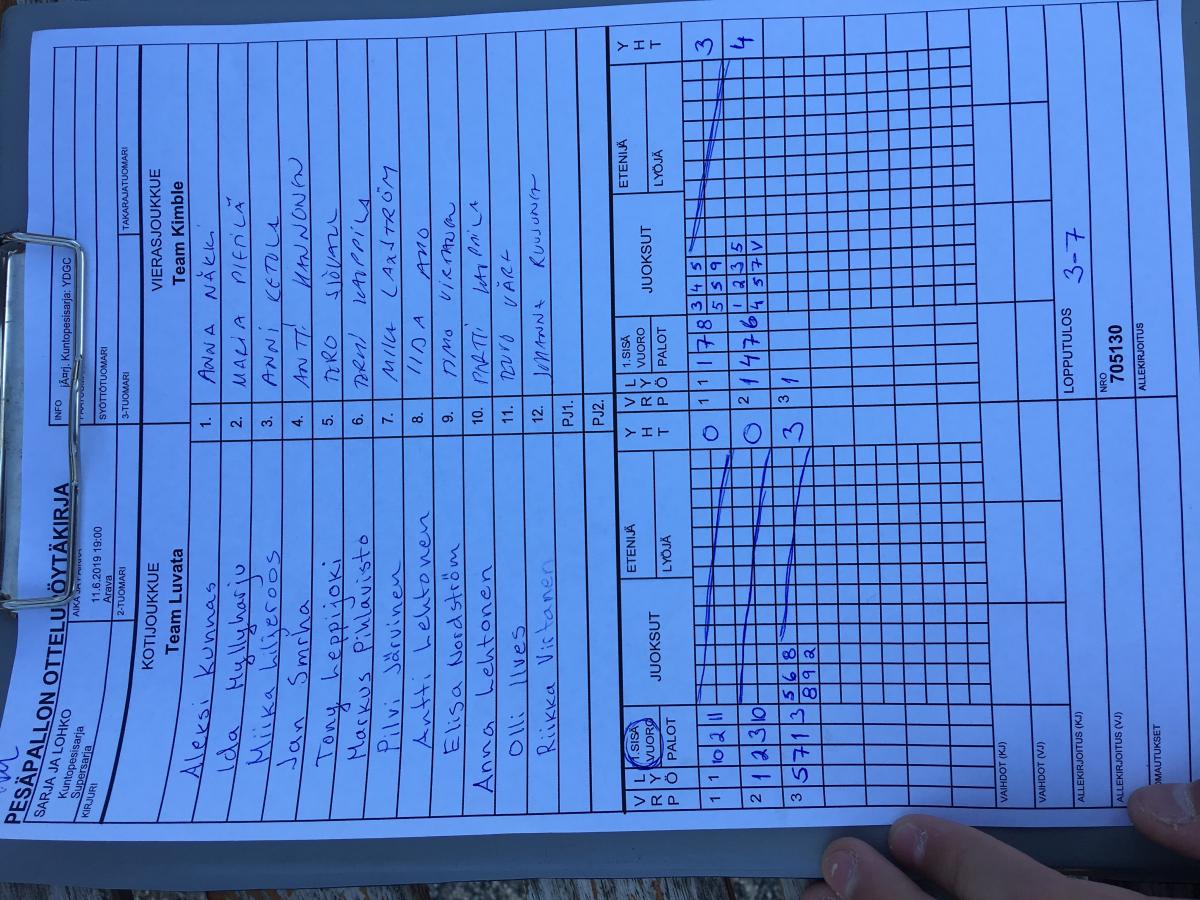 PESÄPALLON OTTELUPÖYTÄKIRJA
SARJA JA LOHKO
Kuntopesisarja
Supersarja
KIRJURI
11.6.2019 19:00
Arava
2-TUOMARI
INFO
Kuntopesisarja: YDGC
SYÖTTÖTUOMARI
3-TUOMARI
TAKARAJATUOMARI
KOTIJOUKKUE
Team Luvata
VIERASJOUKKUE
Team Kimble
Aleksi Kunnas 1. ANNA NÄKKI
Ida Myllyharju 2. MARIA
Miika Liljeroos 3. ANNI KETOLA
Jan Smriha 4. ANTTI KANNONEN
Tony Leppijoki 5.
Markus Pihlavisto 6.
Pilvi Järvinen 7. MIKA LAXSTRÖM
Antti Lehtonen 8. IIDA AMO
Elisa Nordström 9. TIMO VIRTANEN
Anna Lehtonen 10. PERTTI
Olli Ilves 11.
Riikka Viitanen 12. JOHANNA RUUJUNEN
PJ1.
PJ2.
VRP LYÖ 1.SISÄ VUORO PALOT JUOKSUT ETENIJÄ LYÖJÄ YHT VRP LYÖ 1.SISÄ VUORO PALOT JUOKSUT ETENIJÄ LYÖJÄ YHT
1 1 10 2 11 0 1 1 1 7 8 3 4 5 3
5 5 9
2 1 2 3 10 0 2 1 4 7 6 1 2 3 5 4
4 5 7 V
3 5 7 1 3 5 6 8 3 3 1
8 9 2
VAIHDOT (KJ)
VAIHDOT (VJ)
ALLEKIRJOITUS (KJ)
LOPPUTULOS 3-7
ALLEKIRJOITUS (VJ)
NRO
705130
ALLEKIRJOITUS